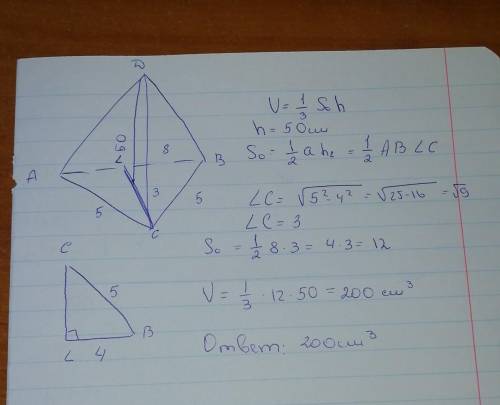 D
A
B
C
L
050
8
3
5
5
V = 1/3 Soh
h = 50 см
So = 1/2 a h₂ = 1/2 AB LC
LC = √5² - 4² = √25 - 16 = √9
LC = 3
So = 1/2 8 · 3 = 4 · 3 = 12
V = 1/3 · 12 · 50 = 200 см³
Ответ: 200 см³
C
5
B
L
4